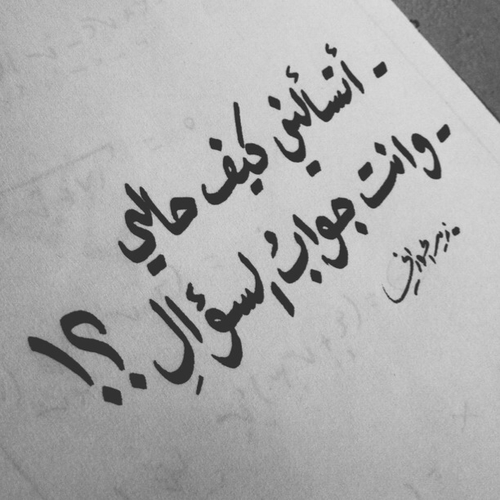 - أتسألني كيف حالي
- وانت جوابُ السؤالِ ..؟!